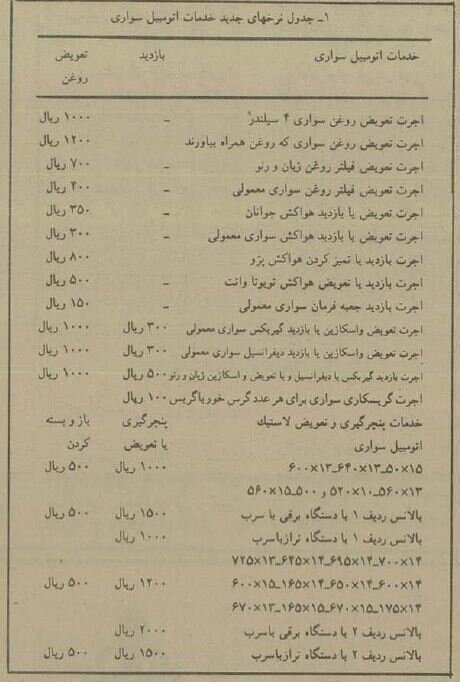 ۱ـ جدول نرخهای جدید خدمات اتومبیل سواری
خدمات اتومبیل سواری بازدید تعویض
روغن
اجرت تعویض روغن سواری ۴ سیلندر ـ ۱۰۰۰ ریال
اجرت تعویض روغن سواری که روغن همراه بیاورند ۱۲۰۰ ریال
اجرت تعویض فیلتر روغن ژیان و رنو ـ ۷۰۰ ریال
اجرت تعویض فیلتر روغن سواری معمولی ـ ۴۰۰ ریال
اجرت تعویض یا بازدید هواکش جوانان ـ ۳۵۰ ریال
اجرت تعویض یا بازدید هواکش سواری معمولی ـ ۳۰۰ ریال
اجرت بازدید یا تمیز کردن هواکش پژو ۸۰۰ ریال
اجرت بازدید یا تعویض هواکش تویوتا وانت ـ ۵۰۰ ریال
اجرت بازدید جعبه فرمان سواری معمولی ـ ۱۵۰ ریال
اجرت تعویض واسکازین یا بازدید گیربکس سواری معمولی ۳۰۰ ریال ۱۰۰۰ ریال
اجرت تعویض واسکازین یا بازدید دیفرانسیل سواری معمولی ۳۰۰ ریال ۱۰۰۰ ریال
اجرت بازدید گیربکس یا دیفرانسیل و یا تعویض واسکازین ژیان و رنو ۵۰۰ ریال ۱۰۰۰ ریال
اجرت گریسکاری سواری برای هر عدد گرس خور با گریس ۱۰۰ ریال
خدمات پنچرگیری و تعویض لاستیك پنچرگیری باز و بسته
اتومبیل سواری یا تعویض کردن
۱۵×۵۰ـ۱۳×۶۴۰ـ۱۳×۶۰۰ ۱۰۰۰ ریال ۵۰۰ ریال
۱۳×۵۶۰ـ۱۰×۵۲۰ و ۵۰۰ـ۱۵×۵۶۰
بالانس ردیف ۱ با دستگاه برقی با سرب ۱۵۰۰ ریال ۵۰۰ ریال
بالانس ردیف ۱ با دستگاه ترازباسرب ۱۰۰۰ ریال
۱۴×۷۰۰ـ۱۴×۶۹۵ـ۱۴×۶۴۵ـ۱۳×۷۲۵
۱۴×۶۰۰ـ۱۴×۶۵۰ـ۱۴×۱۶۵ـ۱۵×۶۰۰ ۱۲۰۰ ریال ۵۰۰ ریال
۱۴×۱۷۵ـ۱۵×۶۷۰ـ۱۵×۱۶۵ـ۱۳×۶۷۰
بالانس ردیف ۲ با دستگاه برقی باسرب ۲۰۰۰ ریال
بالانس ردیف ۲ با دستگاه ترازباسرب ۱۵۰۰ ریال ۵۰۰ ریال